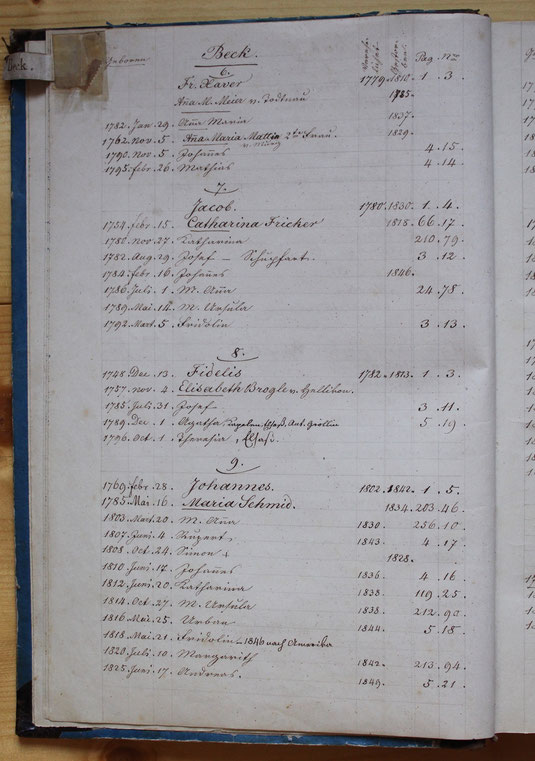 Beck.
Geboren Beck. Pag. Nro
6.
Fr. Xaver 1779. 1810. 1. 3.
Aña M. Meier v. Todtnau 1785.
1782. Jan. 29. Aña Maria 1837.
1762. Nov. 5. Aña Maria Mattin 2te Frau. 1829.
1790. Nov. 5. Johañes 4. 15.
1795. Febr. 26. Mathias 4. 14.
7.
Jacob. 1780. 1830. 1. 4.
1754. Febr. 15. Catharina Fricker 1818. 66. 17.
1780. Nov. 27. Katharina 210. 79.
1782. Aug. 29. Josef – Schupfart. 3. 12.
1784. Febr. 16. Johañes 1846.
1786. Juli. 1. M. Aña 24. 78.
1789. Mai. 14. M. Ursula
1792. Mart. 5. Fridolin 3. 13.
8.
1748. Dec. 13. Fidelis 1782. 1813. 1. 3.
1757. Nov. 4. Elisabeth Brogle v. Hellikon.
1785. Juli. 31. Josef 3. 11.
1789. Dec. 1. Agatha Ant. 5. 19.
1796. Oct. 1. Theresia, Elsaß.
9.
1769. Febr. 28. Johannes. 1802. 1842. 1. 5.
1785. Mai. 16. Maria Schmid. 1834. 203. 46.
1803. Mart. 20. M. Aña 1830. 256. 10.
1807. Juni. 4. Rupert, 1843. 4. 17.
1808. Oct. 24. Simon 1828.
1810. Juni. 17. Johañes 1836. 4. 16.
1812. Juni. 20. Katharina 1838. 119. 25.
1814. Oct. 27. M. Ursula 1838. 212. 90.
1816. Mai. 25. Urban 1844. 5. 18.
1818. Mai. 21. Fridolin – 1846 nach Amerika
1820. Juli. 10. Margarith 1842. 213. 94.
1825. Juni. 17. Andreas. 1849. 5. 21.